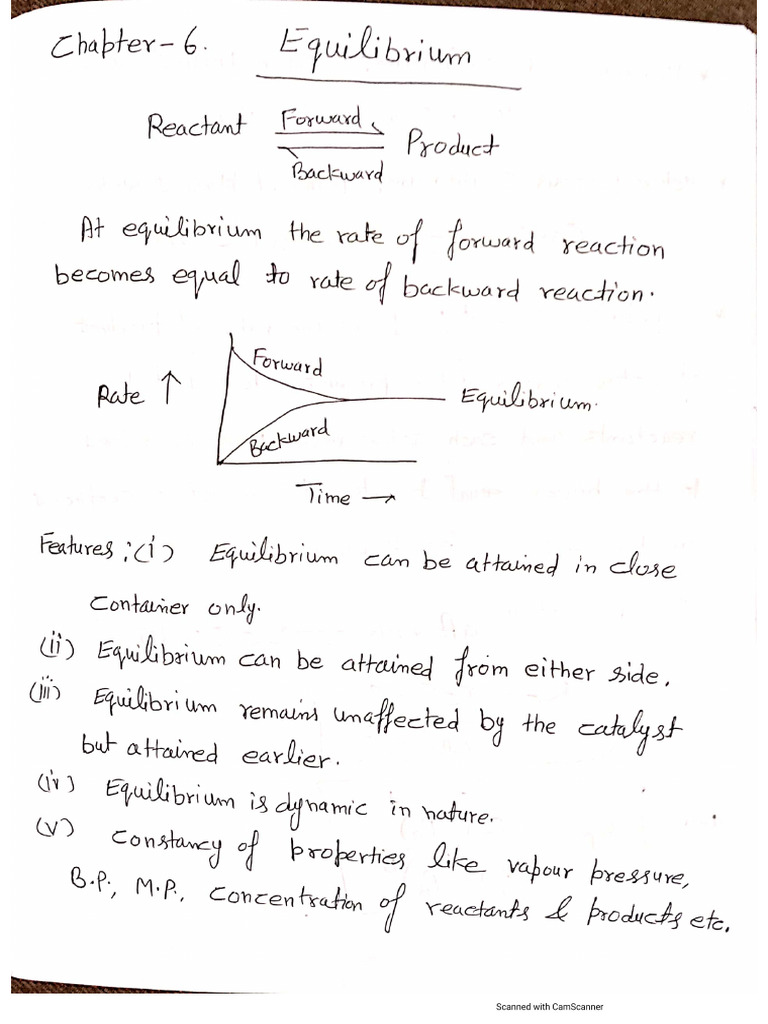 Chapter-6. Equilibrium
Reactant Forward Product
Backward
At equilibrium the rate of forward reaction
becomes equal to rate of backward reaction.
Forward
Rate ↑ Equilibrium.
Backward
Time →
Features: (i) Equilibrium can be attained in close
container only.
(ii) Equilibrium can be attained from either side.
(iii) Equilibrium remains unaffected by the catalyst
but attained earlier.
(iv) Equilibrium is dynamic in nature.
(v) Constancy of properties like vapour pressure,
B.P., M.P., concentration of reactants & products etc.
Scanned with CamScanner